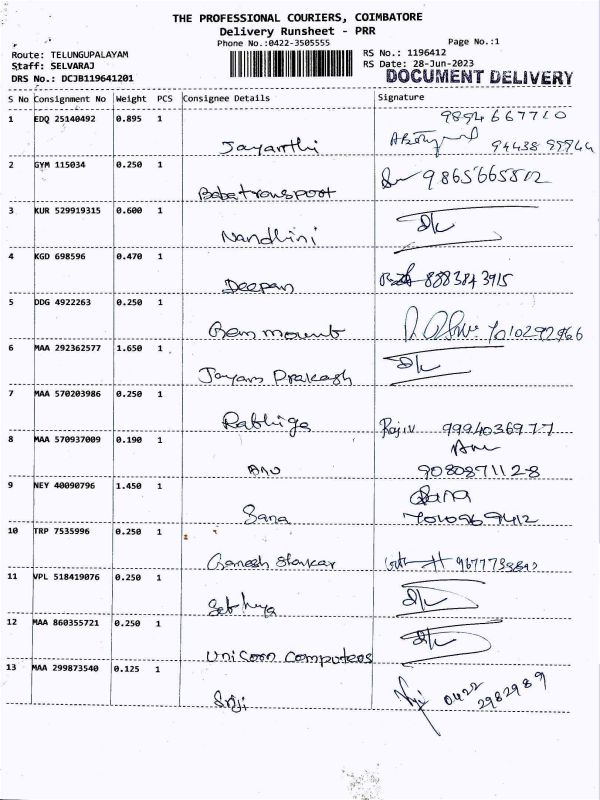 THE PROFESSIONAL COURIERS, COIMBATORE
Delivery Runsheet - PRR
Phone No.:0422-3505555
Page No.:1
Route: TELUNGUPALAYAM
RS No.: 1196412
Staff: SELVARAJ
RS Date: 28-Jun-2023
DRS No.: DCJB119641201
DOCUMENT DELIVERY
S No Consignment No Weight PCS Consignee Details Signature
1 EDQ 25140492 0.895 1 Jayanthi 9894667710
94438 99944
2 GYM 115034 0.250 1 Baba transport 9865665812
3 KUR 529919315 0.600 1 Nandhini D/c
4 KGD 698596 0.470 1 Deepan 8883843915
5 DDG 4922263 0.250 1 Ben mount 7010292966
6 MAA 292362577 1.650 1 Jayam Prakash D/c
7 MAA 570203986 0.250 1 Rabhiga Rajiv 9994036977
8 MAA 570937009 0.190 1 Anu Anu
9080871128
9 NEY 40090796 1.450 1 Sana Sana
7010969412
10 TRP 7535996 0.250 1 Ganesh Shankar
11 VPL 518419076 0.250 1 D/c
12 MAA 860355721 0.250 1 Unicorn Computers D/c
13 MAA 299873540 0.125 1 Sriji 0422
2982989